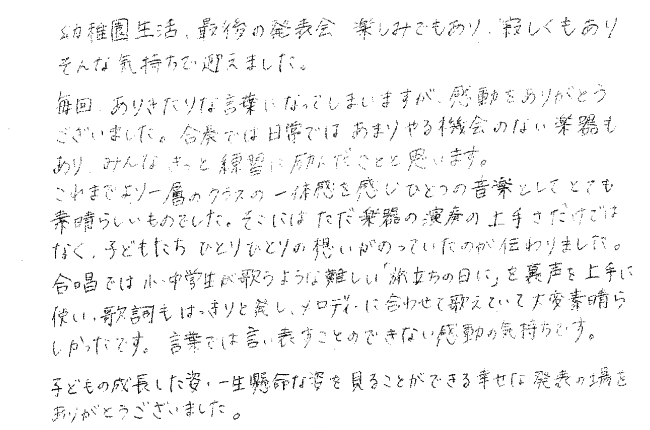 幼稚園生活、最後の発表会 楽しみでもあり、寂しくもあり
そんな気持ちで迎えました。
毎回、ありきたりな言葉になってしまいますが、感動をありがとう
ございました。合奏では日常では あまりやる機会のない楽器も
あり、みんな きっと 練習に励んだことと思います。
これまでより一層のクラスの一体感を感じひとつの音楽としてとても
素晴らしいものでした。そこには ただ楽器の演奏の上手さだけでは
なく、子どもたち ひとりひとりの想いがのっていたのが伝わりました。
合唱では小・中学生が歌うような難しい「旅立ちの日に」を裏声を上手に
使い、歌詞もはっきりと発し、メロディーに合わせて歌えていて大変素晴ら
しかったです。言葉では言い表すことのできない感動の気持ちです。
子どもの成長した姿・一生懸命な姿を見ることができる幸せな発表の場を
ありがとうございました。